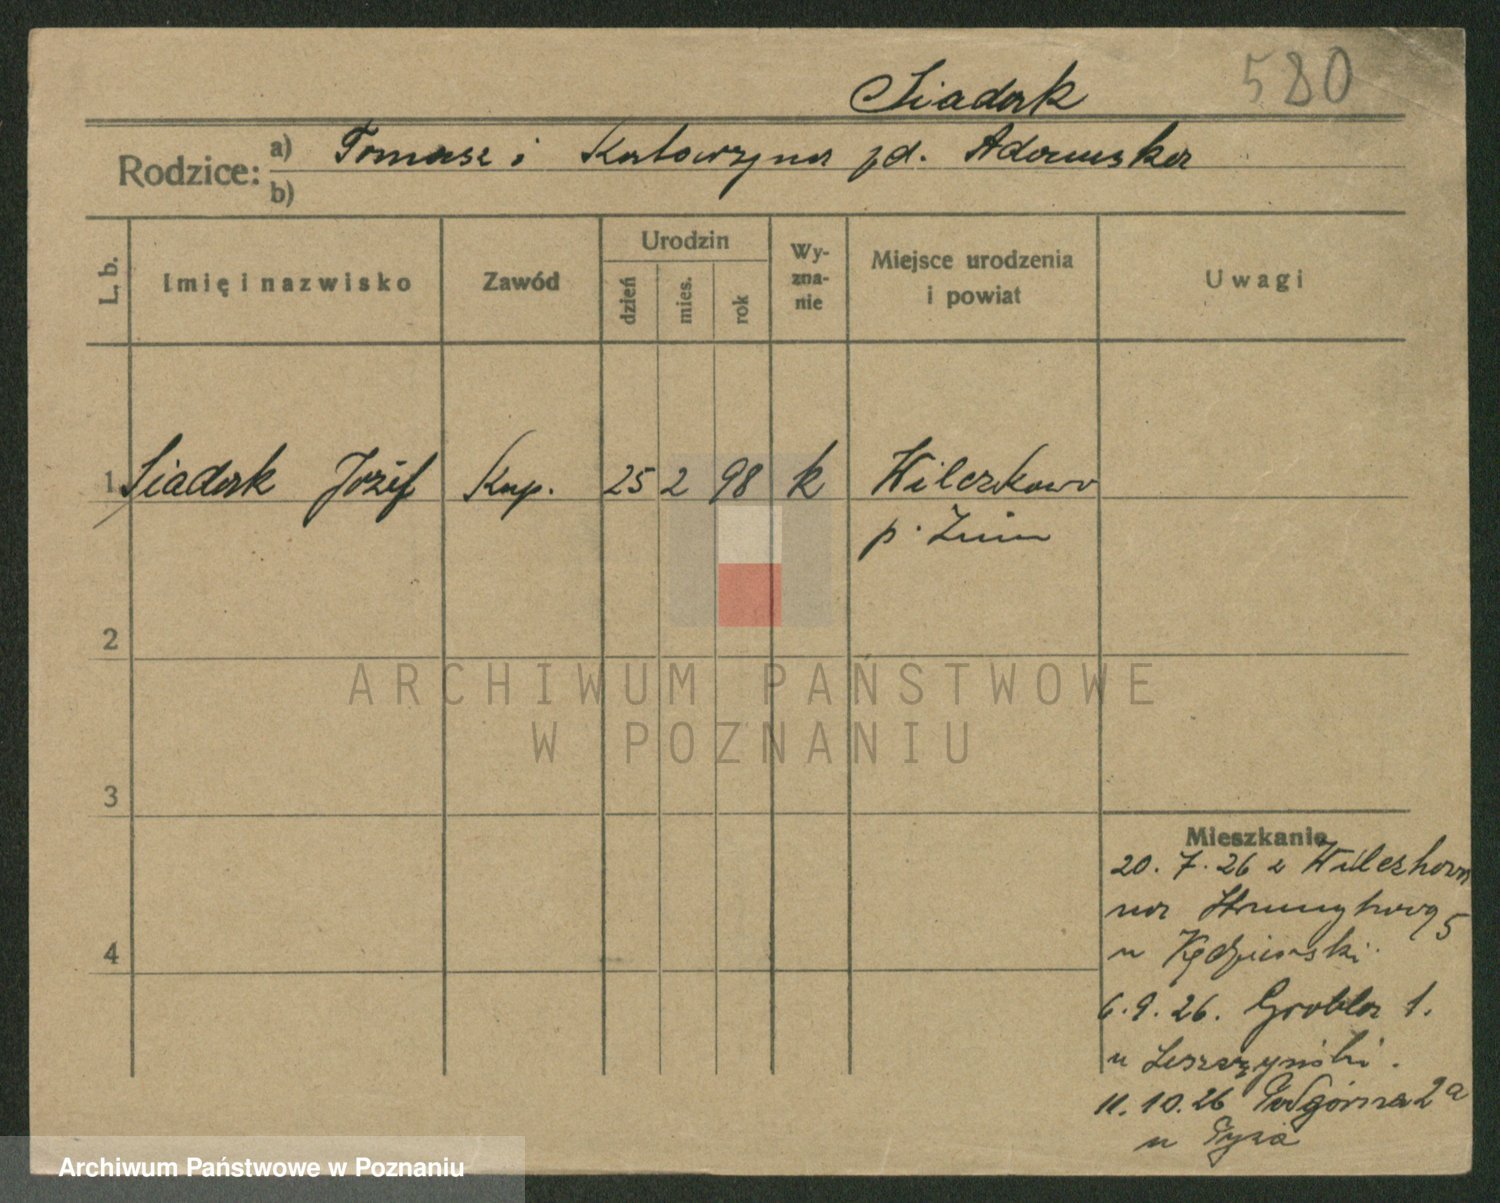 Siadak 580
Rodzice: a) Tomasz i Katarzyna zd. Adamska
b)
L. b. Imię i nazwisko Zawód Urodzin dzień mies. rok Wyznanie Miejsce urodzenia i powiat Uwagi
1 Siadak Józef Kup. 25 2 98 k Wilczkowo
p. Żnin
2
ARCHIWUM PAŃSTWOWE
W POZNANIU
3
Mieszkanie
20. 7. 26 z Wilczkowa
na 5
u Kędzierski.
4
6. 9. 26. Grobla 1.
u Leszczyński.
11. 10. 26 Podgórna 2a
u
Archiwum Państwowe w Poznaniu